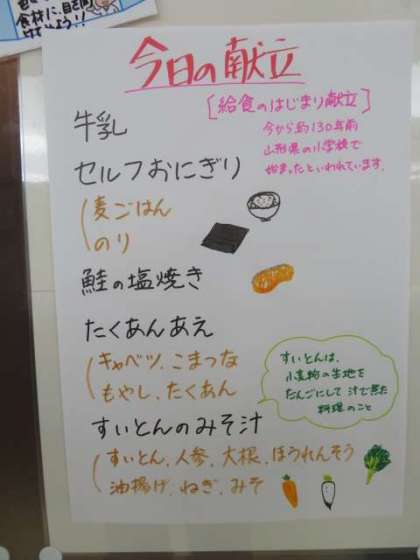 食材に、自己
今日の献立
[給食のはじまり献立]
今から約130年前
山形県の小学校で
始まったといわれています。
牛乳
セルフおにぎり
麦ごはん
のり
鮭の塩焼き
たくあんあえ
キャベツ、こまつな
もやし、たくあん
すいとんは、
小麦粉の生地を
だんごにして汁で煮た
料理のこと
すいとんのみそ汁
すいとん、人参、大根、ほうれんそう
油揚げ、ねぎ、みそ